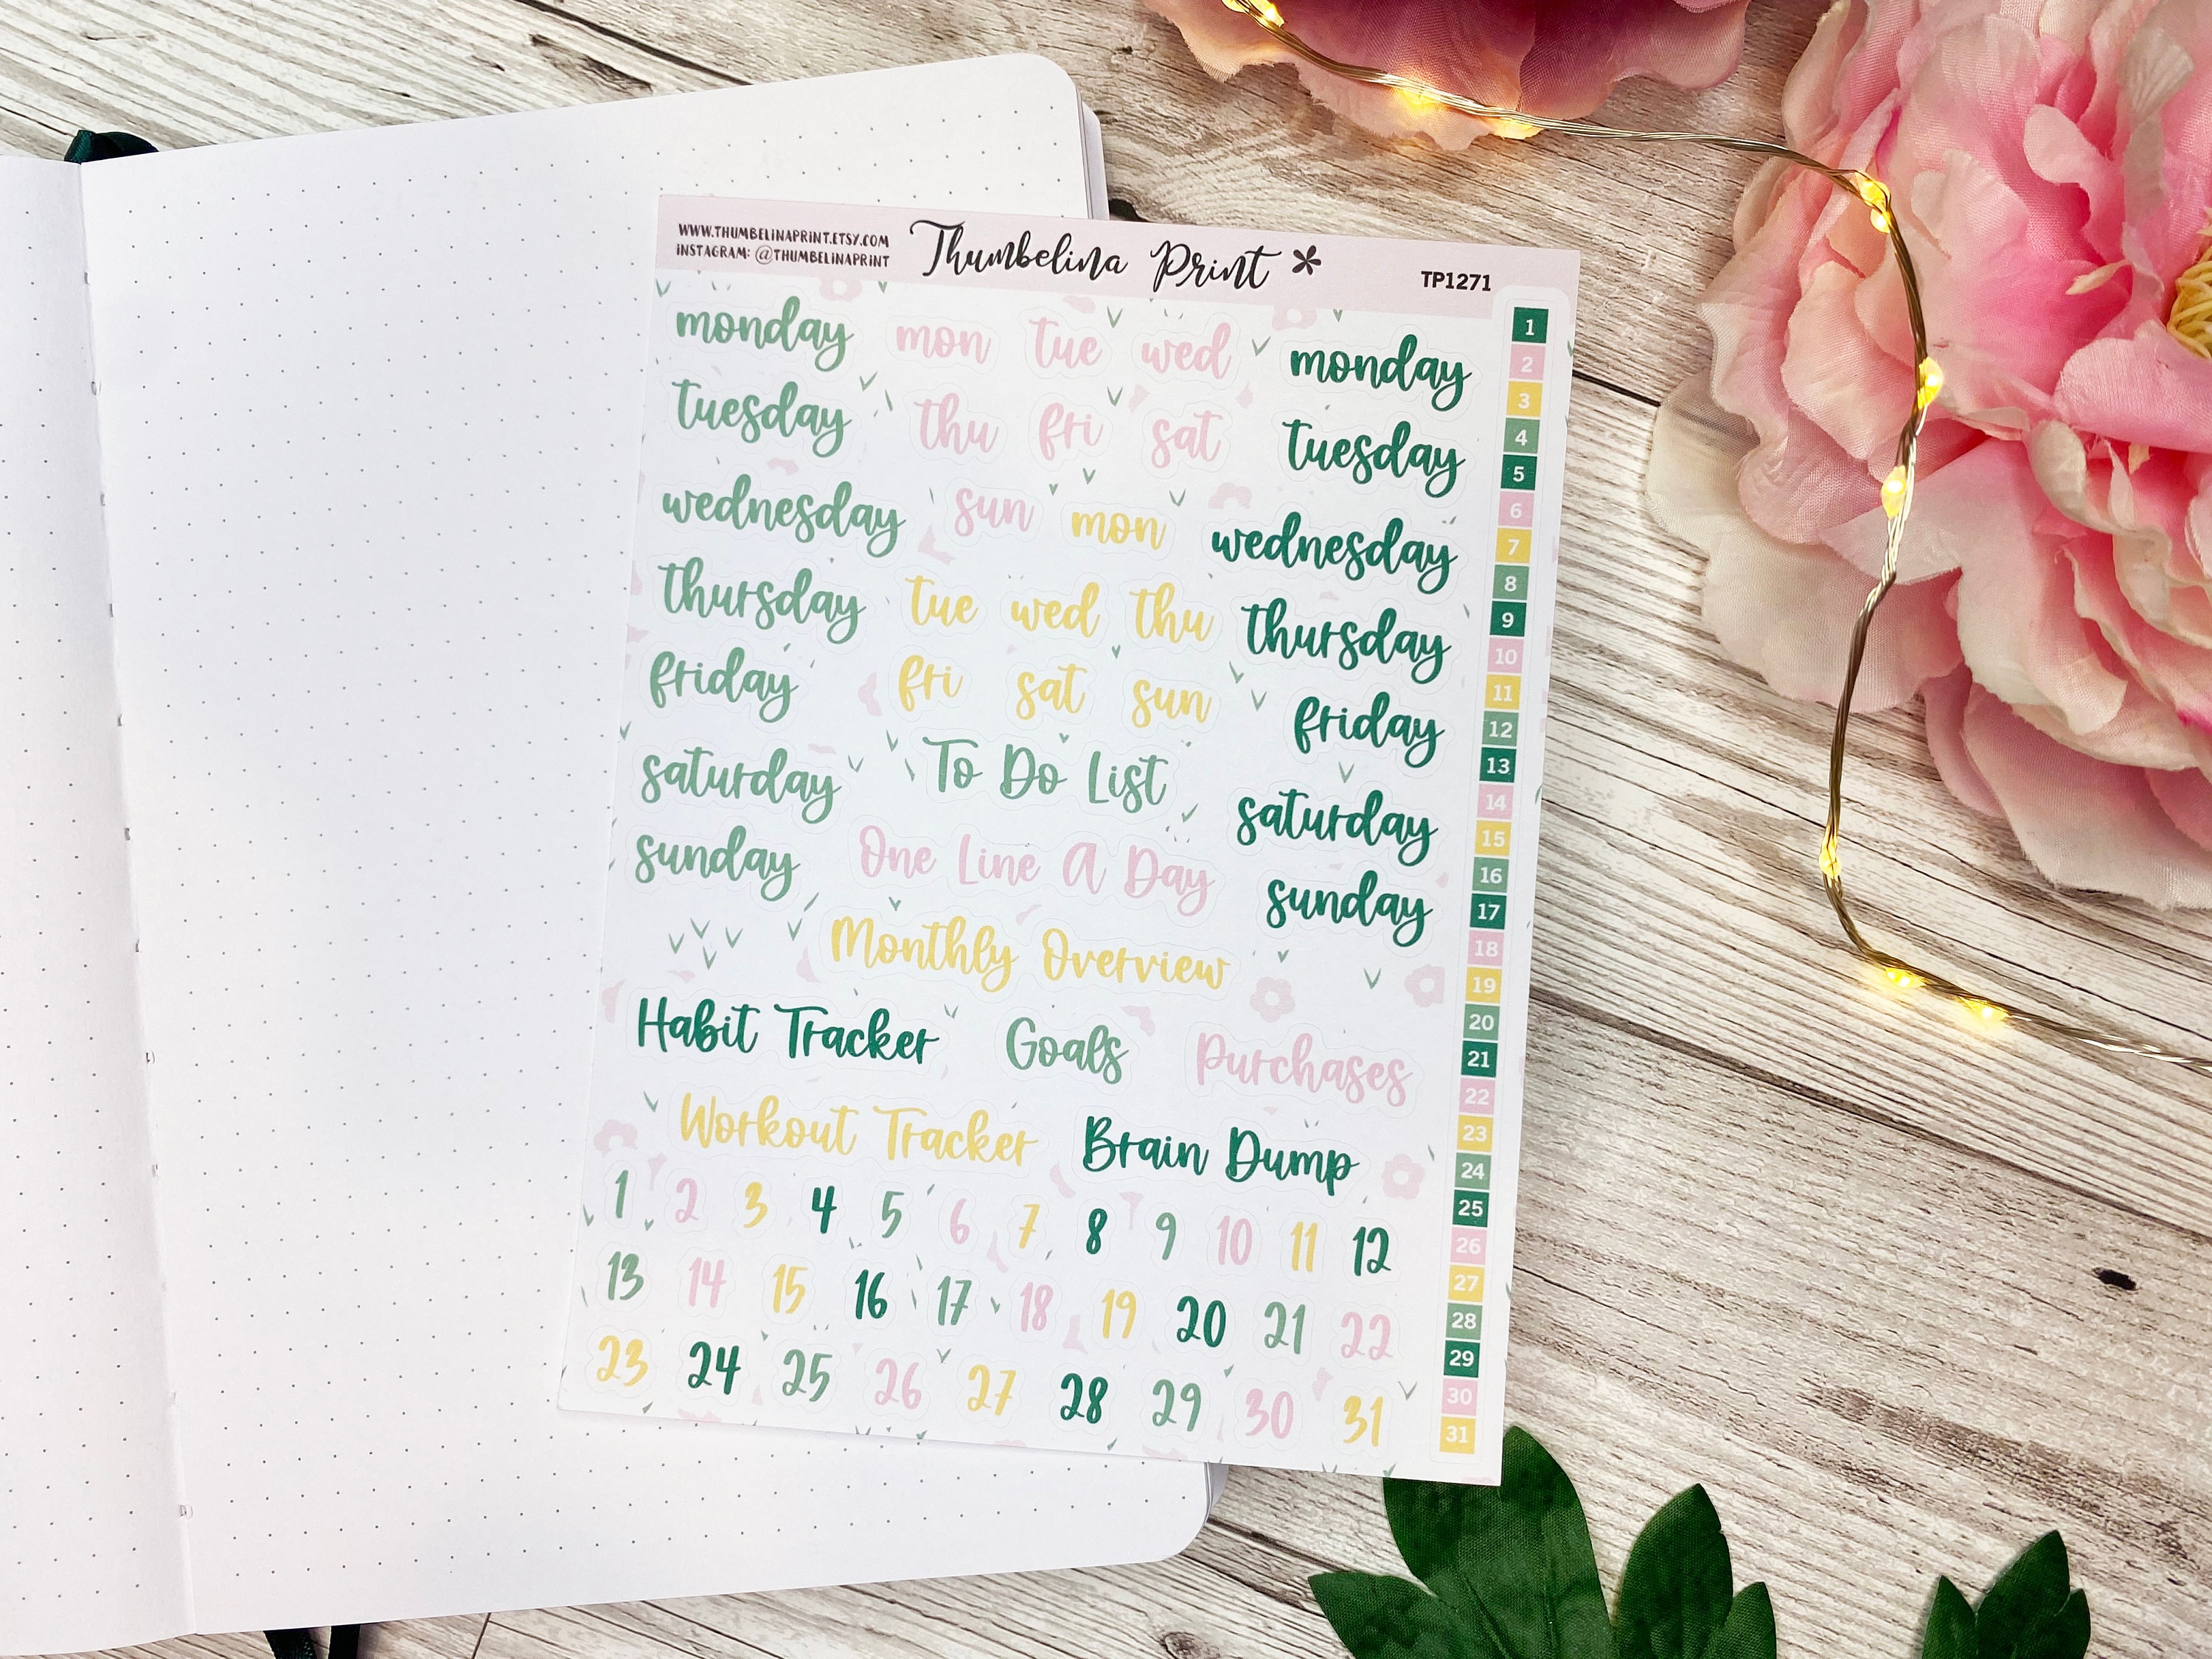 WWW.THUMBELINAPRINT.ETSY.COM
INSTAGRAM: @THUMBELINAPRINT
Thumbelina Print
TP1271
monday mon tue wed monday
tuesday thu fri sat tuesday
wednesday sun mon wednesday
thursday tue wed thu thursday
friday fri sat sun friday
saturday To Do List saturday
sunday One Line A Day sunday
Monthly Overview
Habit Tracker Goals Purchases
Workout Tracker Brain Dump
1 2 3 4 5 6 7 8 9 10 11 12
13 14 15 16 17 18 19 20 21 22
23 24 25 26 27 28 29 30 31
1
2
3
4
5
6
7
8
9
10
11
12
13
14
15
16
17
18
19
20
21
22
23
24
25
26
27
28
29
30
31